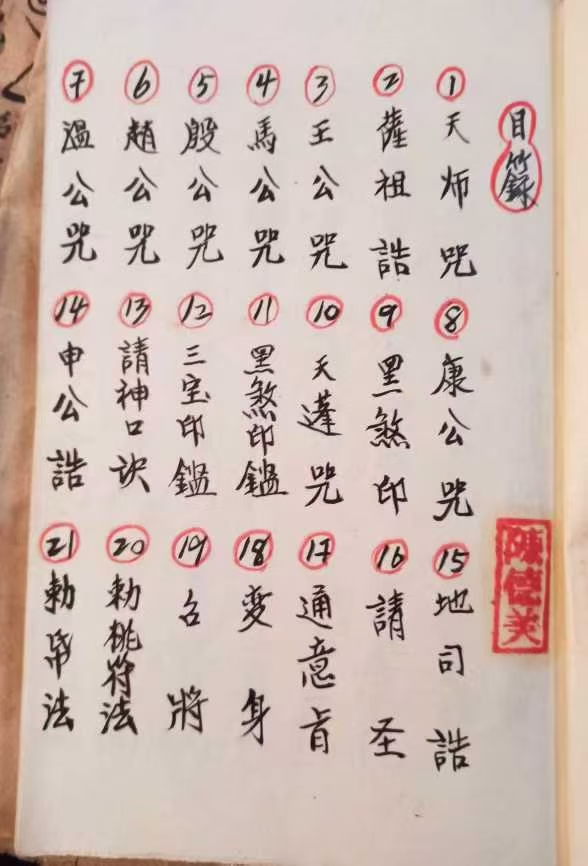 目籙
1 天师咒
2 薩祖誥
3 王公咒
4 馬公咒
5 殷公咒
6 趙公咒
7 溫公咒
8 康公咒
9 黑煞印
10 天蓬咒
11 黑煞印鑑
12 三宝印鑑
13 請神口訣
14 申公誥
15 地司誥
16 請圣
17 通意旨
18 变身
19 召將
20 勅桃符法
21 勅帛法
陳億美